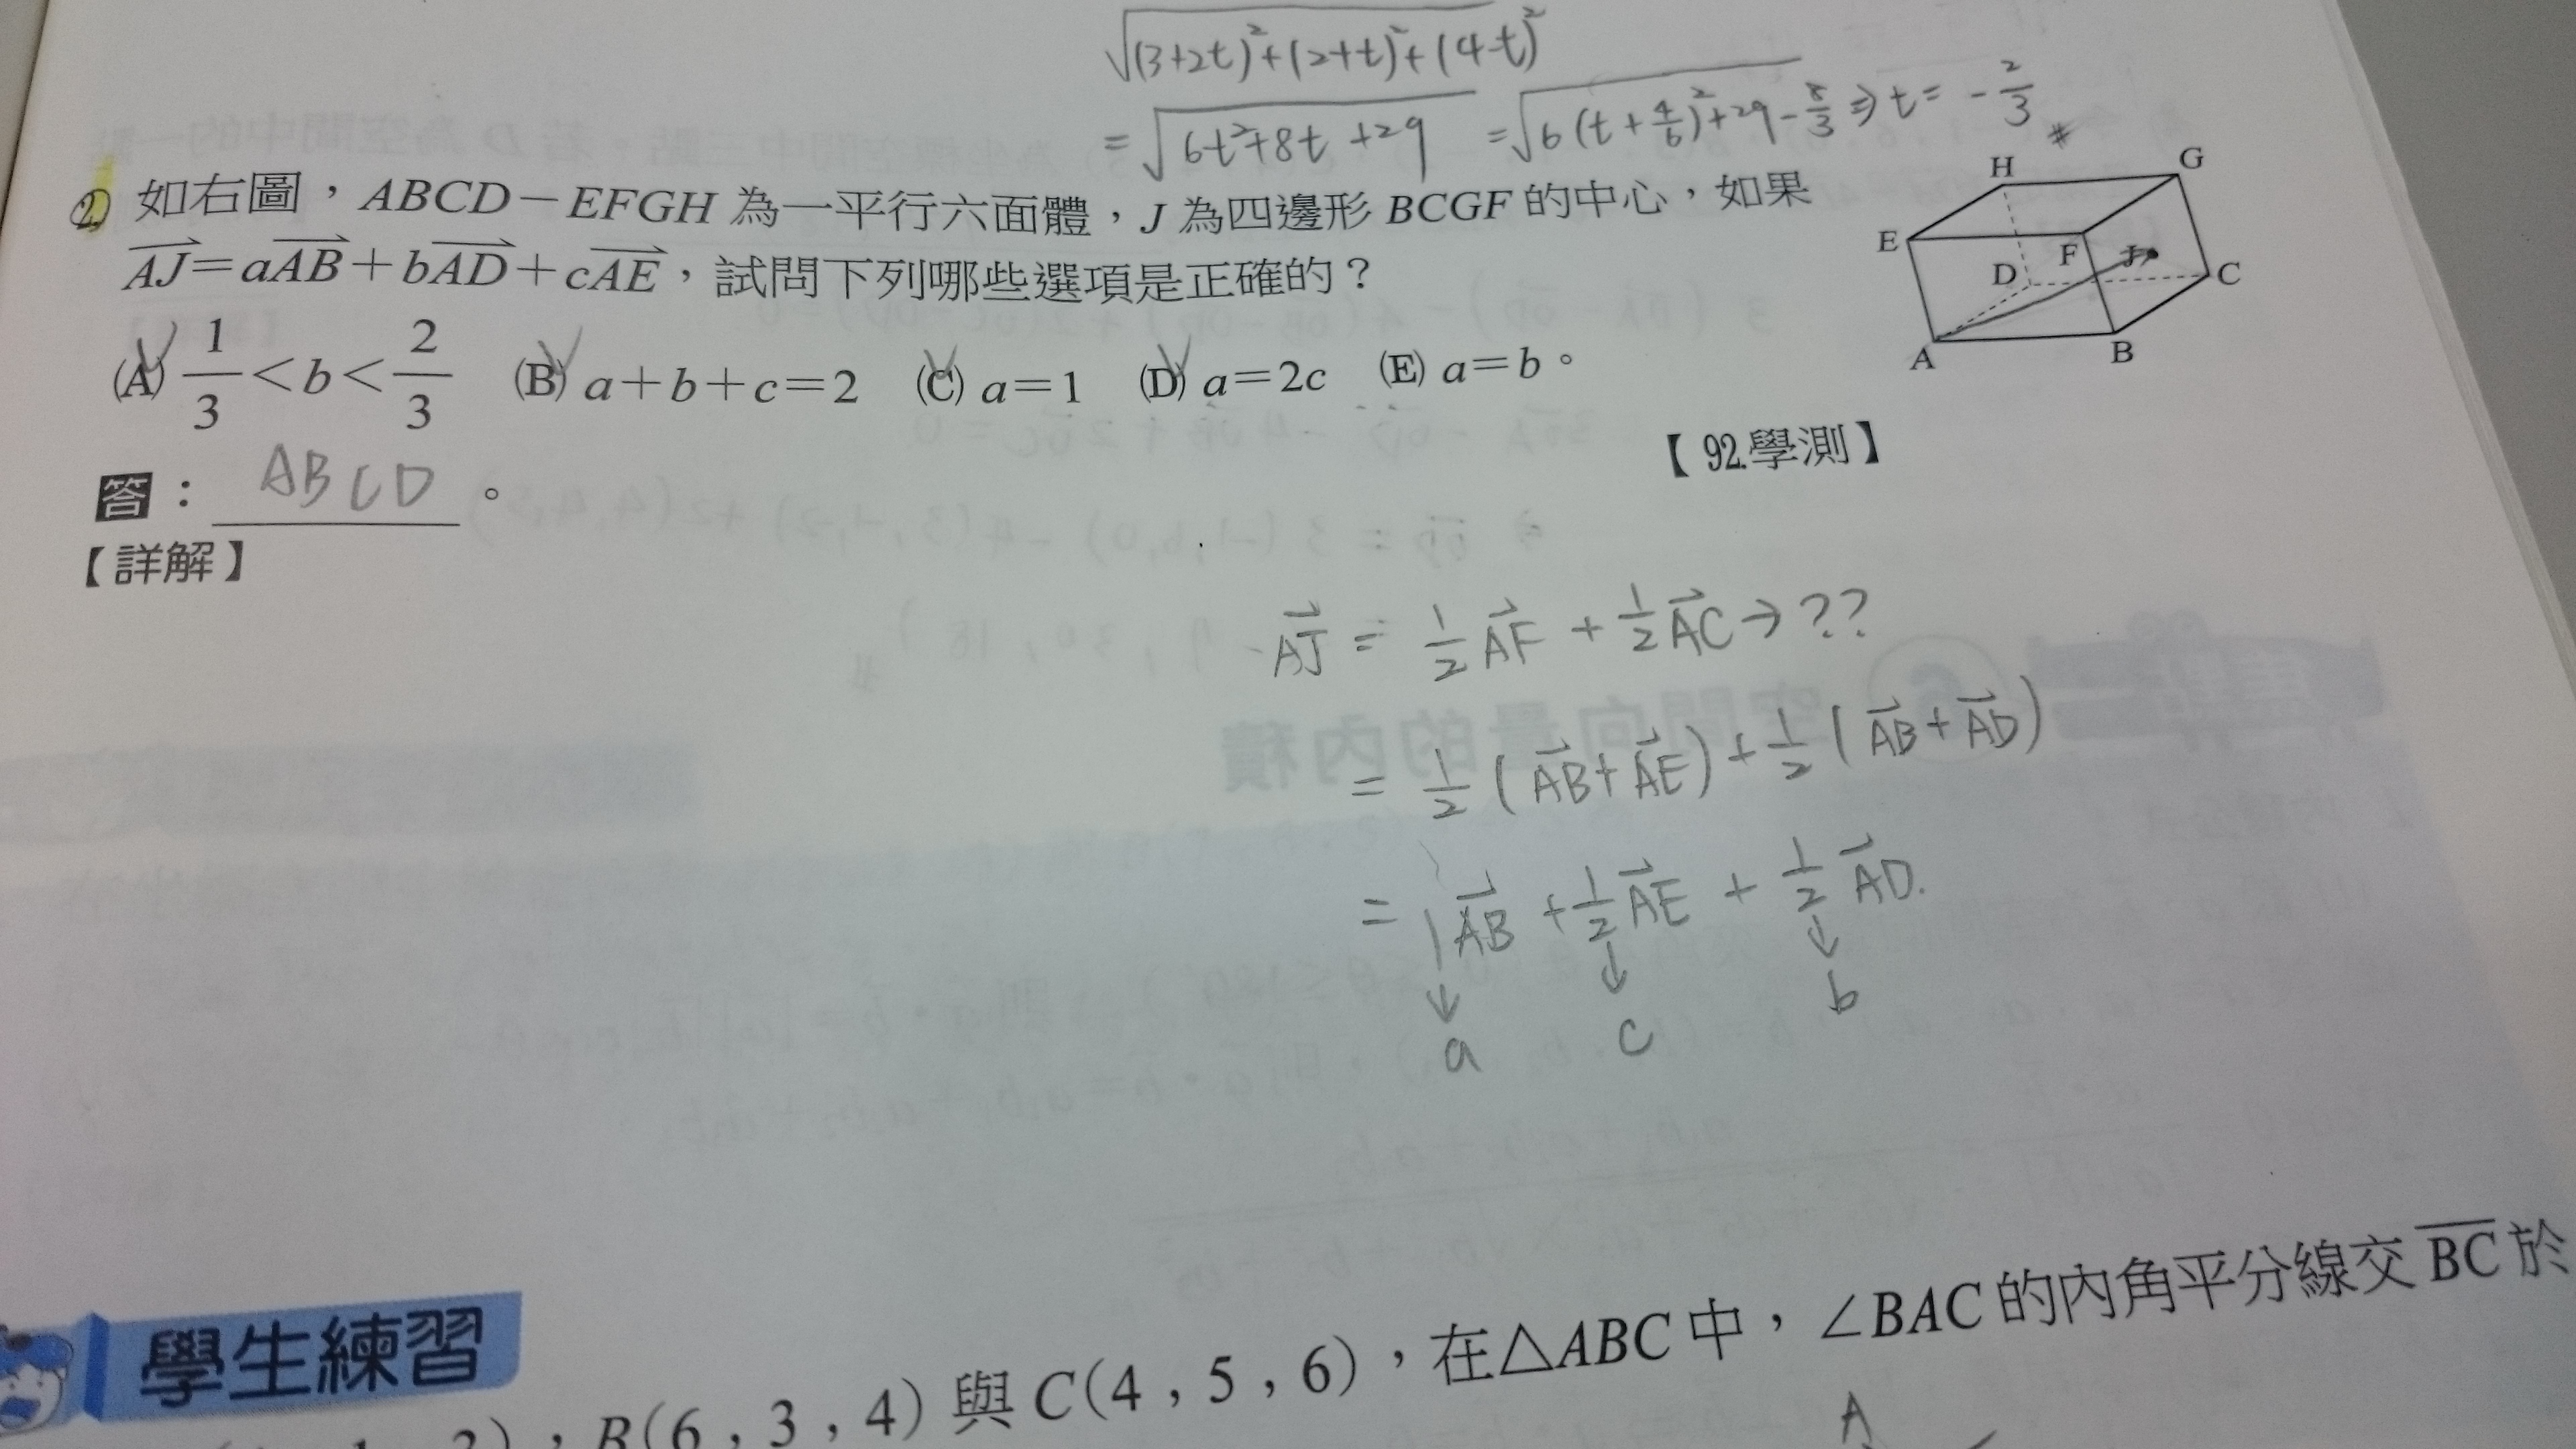 √(3+2t)²+(2+t)²+(4-t)²
= √6t²+8t+29 = √6(t+4/6)²+29-8/3 ⇒ t = -2/3 #
② 如右圖，ABCD－EFGH 為一平行六面體，J 為四邊形 BCGF 的中心，如果
AJ＝aAB＋bAD＋cAE，試問下列哪些選項是正確的？
(A) 1/3＜b＜2/3 (B) a＋b＋c＝2 (C) a＝1 (D) a＝2c (E) a＝b。
H G
E F J
D C
A B
【92.學測】
答：ABCD。
【詳解】
AJ = 1/2 AF + 1/2 AC → ??
= 1/2 (AB+AE) + 1/2 (AB+AD)
= 1AB + 1/2 AE + 1/2 AD.
↓ ↓ ↓
a c b
學生練習
，B(6，3，4) 與 C(4，5，6)，在△ABC 中，∠BAC 的內角平分線交 BC 於
A